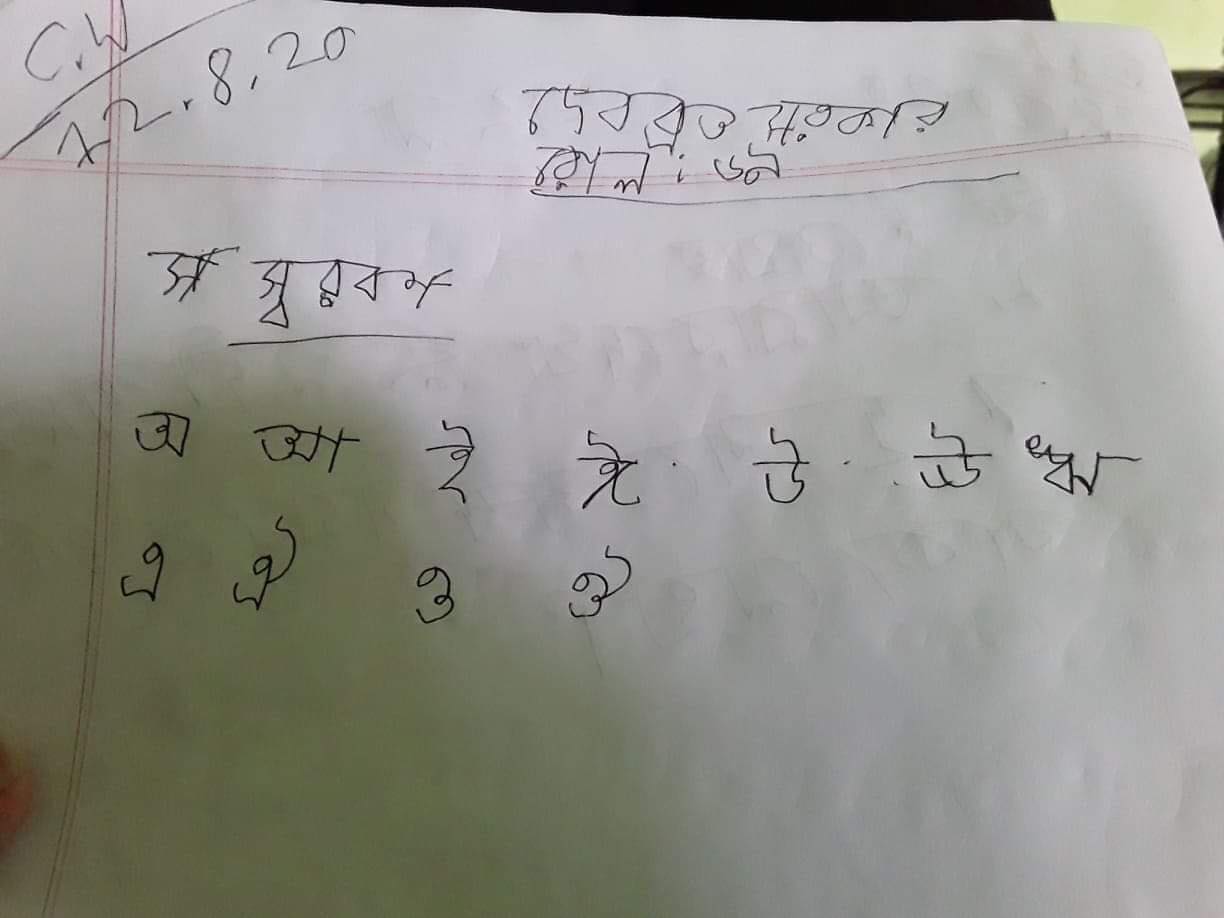 C.W
12.8.20
দেবব্রত সরকার
স্বরবর্ণ
অ আ ই ঈ উ ঊ ঋ
এ ঐ ও ঔ